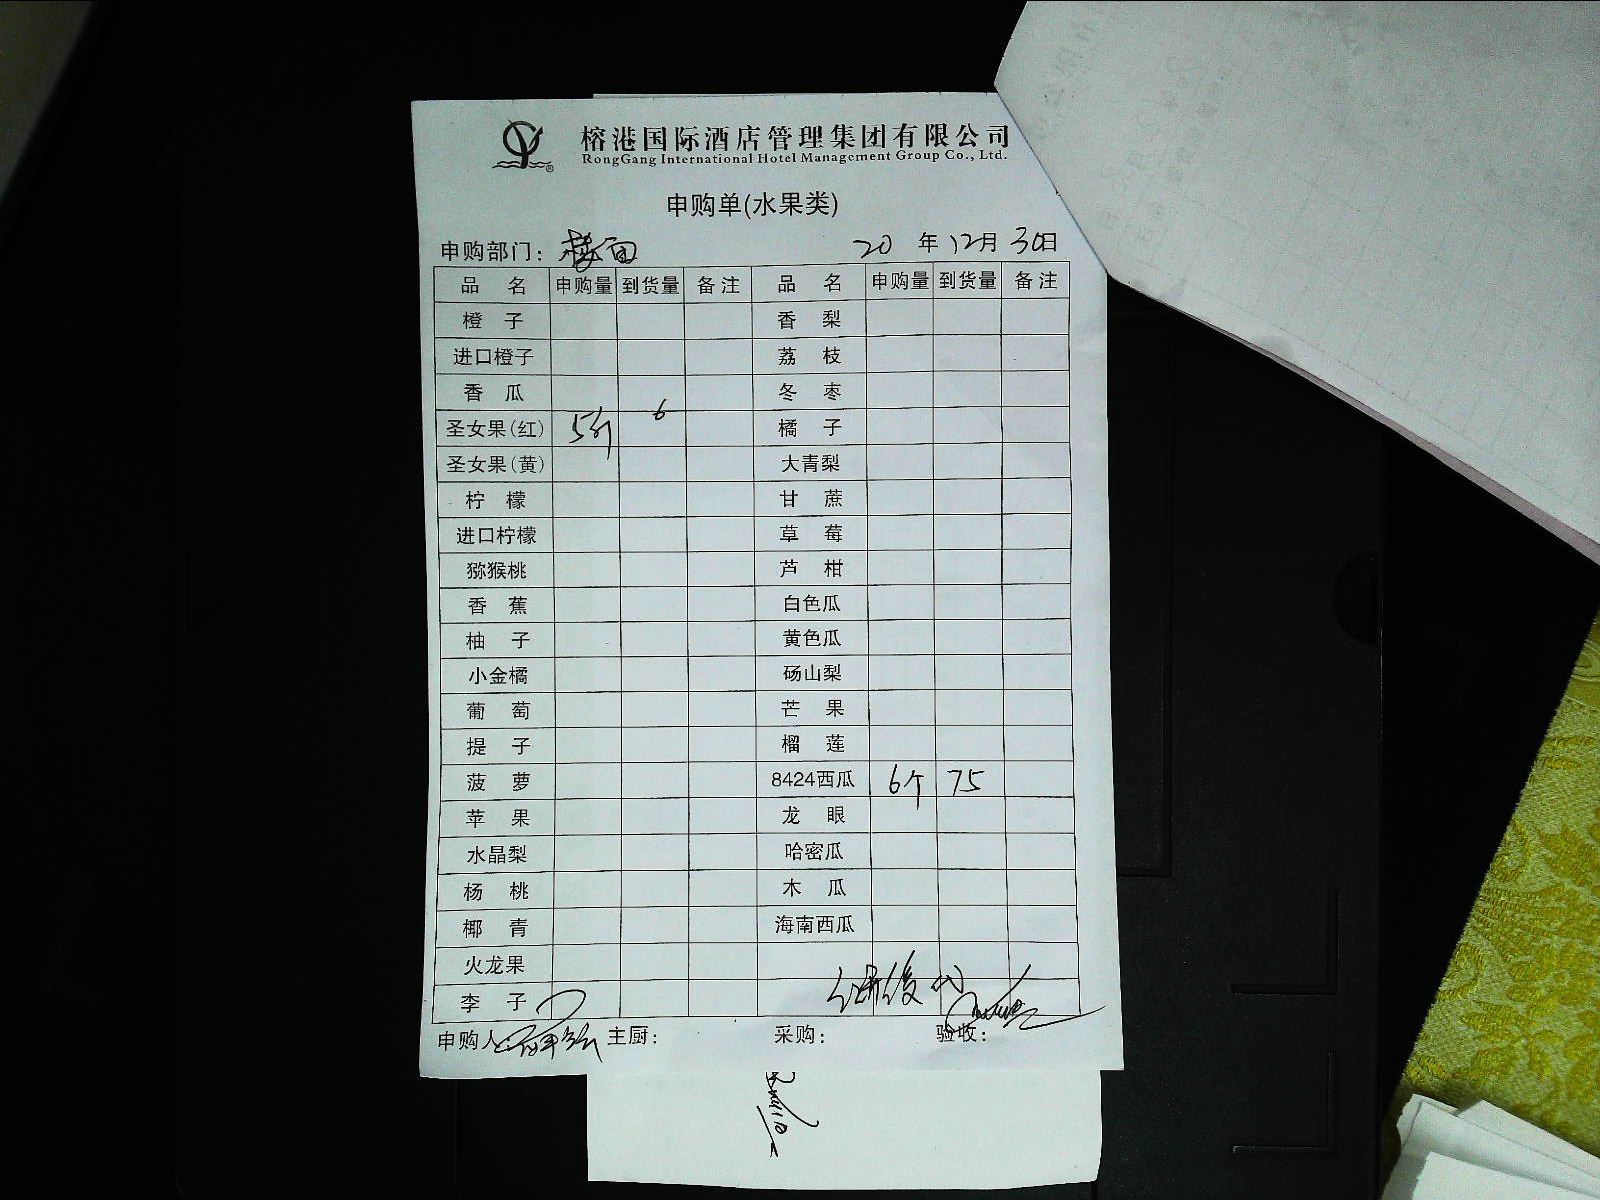 榕港国际酒店管理集团有限公司
RongGang International Hotel Management Group Co., Ltd.
申购单(水果类)
申购部门: 楼面 20 年 12月 30日
品 名 申购量 到货量 备注 品 名 申购量 到货量 备注
橙 子 香 梨
进口橙子 荔 枝
香 瓜 冬 枣
圣女果(红) 5斤 6 橘 子
圣女果(黄) 大青梨
柠 檬 甘 蔗
进口柠檬 草 莓
猕猴桃 芦 柑
香 蕉 白色瓜
柚 子 黄色瓜
小金橘 砀山梨
葡 萄 芒 果
提 子 榴 莲
菠 萝 8424西瓜 6个 75
苹 果 龙 眼
水晶梨 哈密瓜
杨 桃 木 瓜
椰 青 海南西瓜
火龙果
李 子
申购人: 主厨: 采购: 验收: